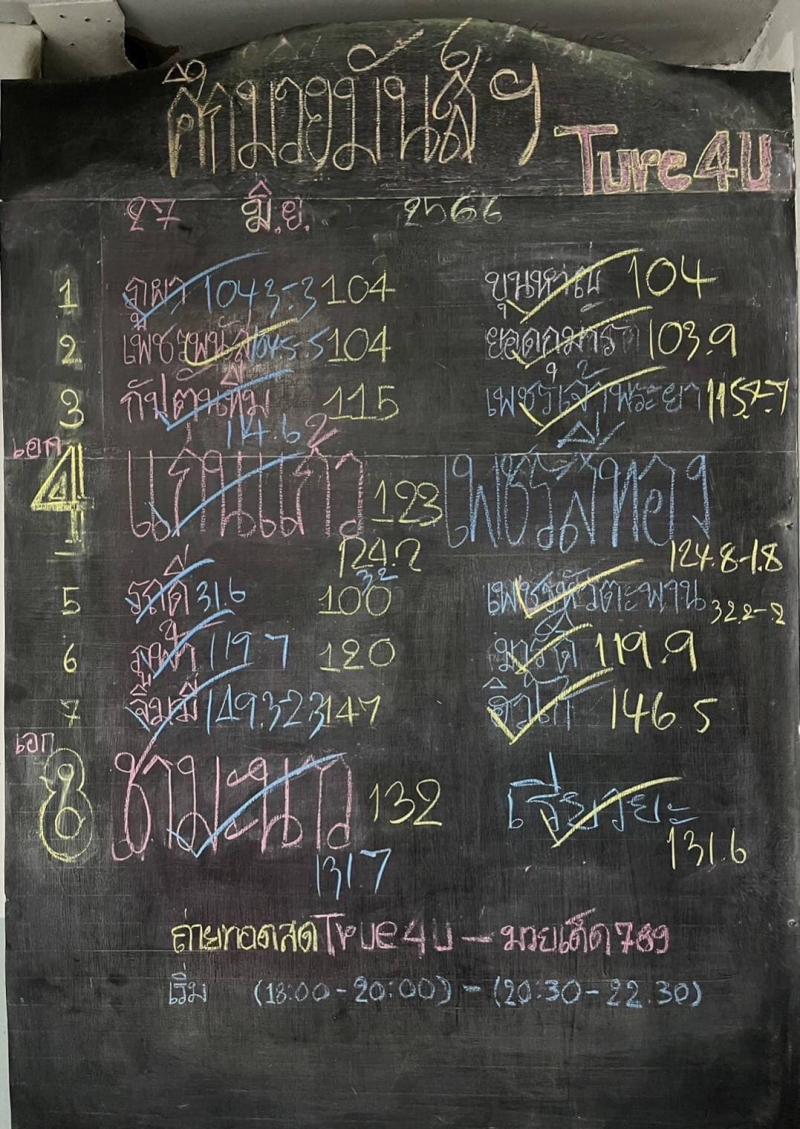 ศึกมวยมันส์ฯ
Ture4U
27 มิ.ย. 2566
1 ภูผา 104.3-.3 104 ขุนหาญ 104
2 เพชรพนัส 104.5-.5 104 ยอดกุมาร 103.9
3 กัปตันทีม 115 เพชรเจ้าพระยา 115.7-.7
114.6
เอก
4 แก่นแก้ว 123 เพชรสีทอง
124.2 124.8-1.8
32
5 รถดี 31.6 100 เพชรหัวตะพาน 32.2-2
6 ภูฟ้า 119.7 120 มารุติ 119.9
7 จิมมี่ 149.3-2.3 147 146.5
เอก
8 ชามะนาว 132 เจี๊ยวยะ
131.7 131.6
ถ่ายทอดสด True4U – มวยเด็ด789
เริ่ม (18:00-20:00) - (20:30-22.30)